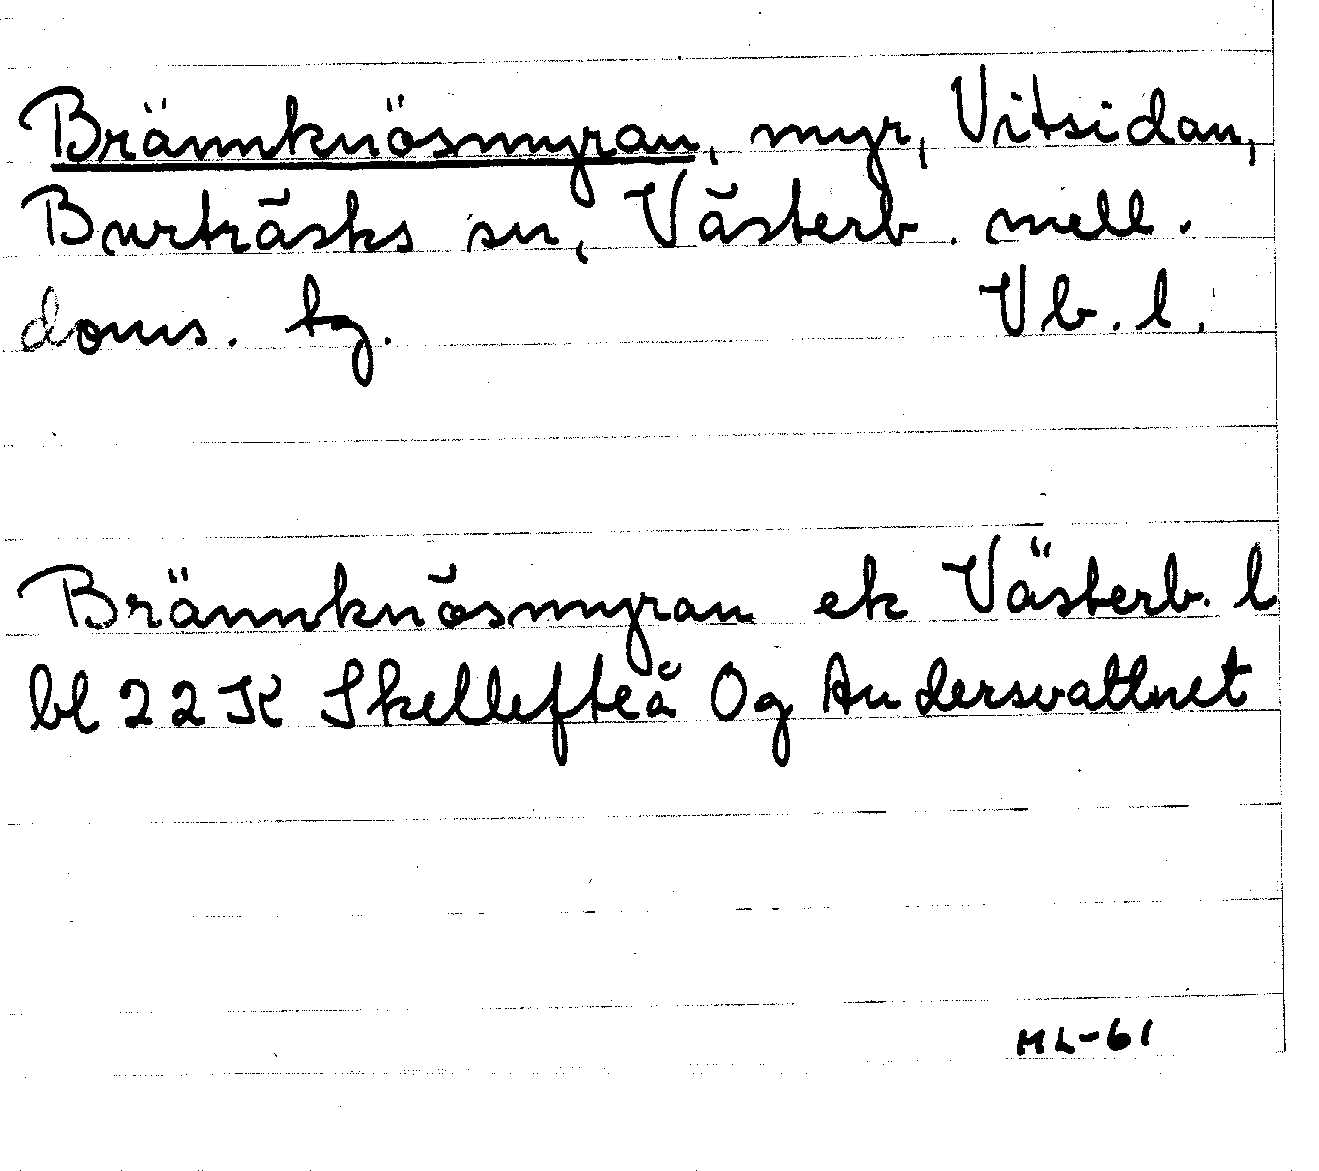 Brännknösmyran, myr, Vitsidan,
Burträsks sn, Västerb. mell.
doms. tg. Vb. l.
Brännknösmyran ek Västerb. l
bl 22 K Skellefteå Og Andersvattnet
ML-61